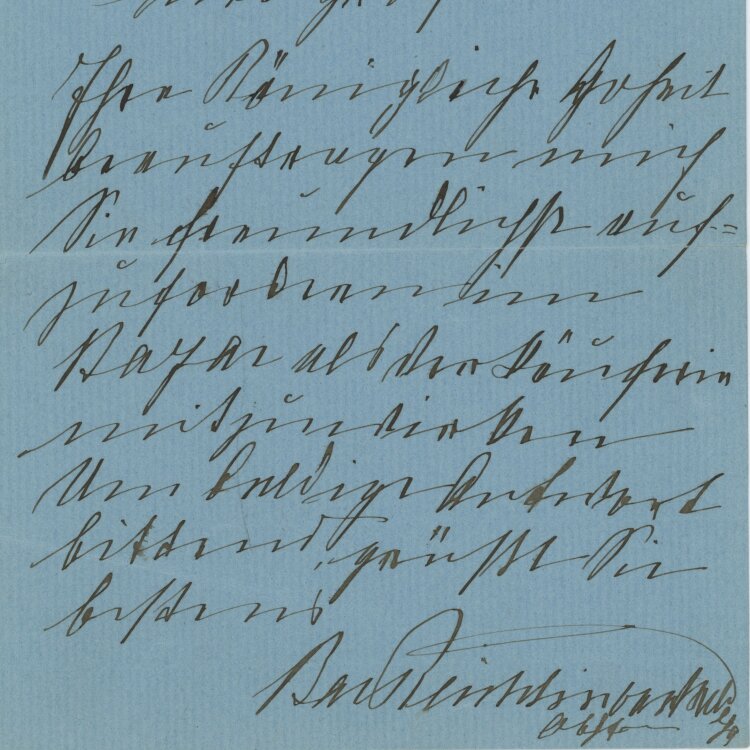 Ihre Königliche Hoheit
beauftragen mich
Sie freundlichst auf=
zufordern im
Bazar als Verkäuferin
mitzuwirken
Um baldige Antwort
bittend, grüßt Sie
bestens